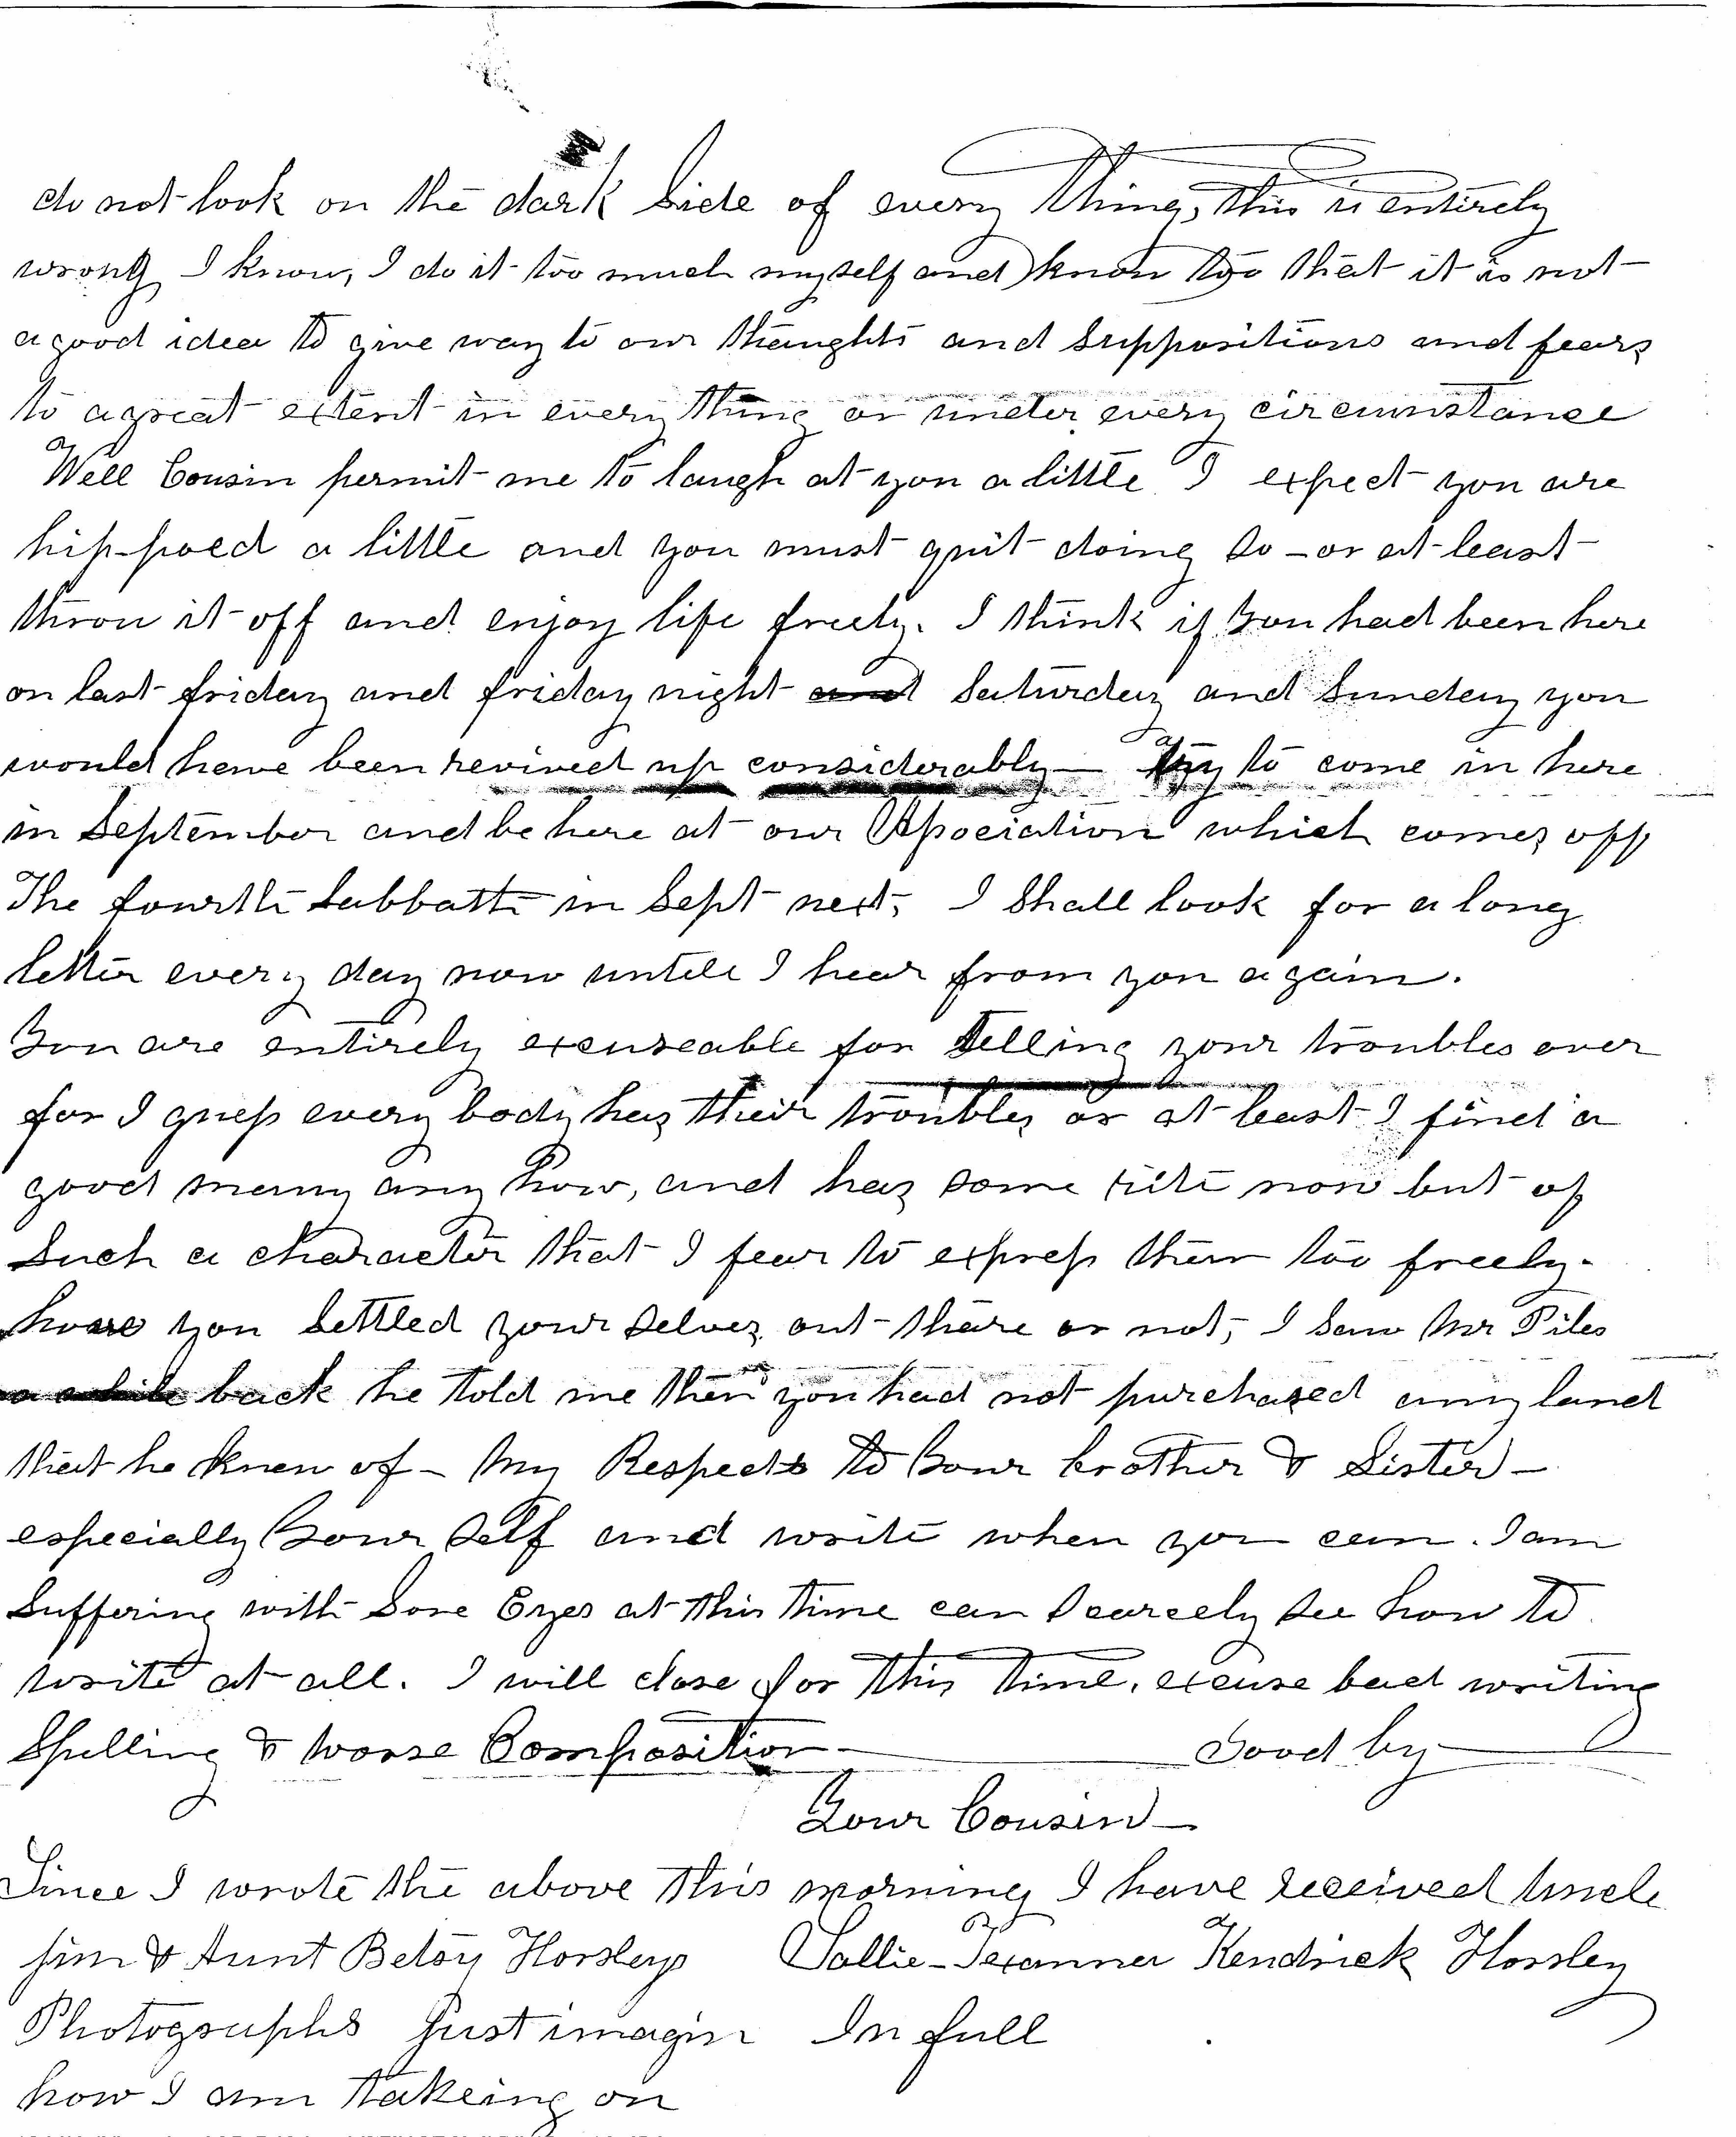 do not look on the dark side of every thing, this is entirely
wrong I know, I do it too much myself and know too that it is not
a good idea to give way to our thoughts and suppositions and fears
to a great extent in every thing or under every circumstance
Well Cousin permit me to laugh at you a little I expect you are
hip-poed a little and you must quit doing so - or at least
throw it off and enjoy life freely. I think if you had been here
on last friday and friday night and Saturday and Sunday you
would have been revived up considerably - try to come in here
in September and be here at our Association which comes off
The fourth Sabbath in Sept next, I Shall look for a long
letter every day now untill I hear from you again.
You are entirely excuseable for telling your troubles over
for I guess every body has their troubles or at least I find a
good many any how, and has some now but of
Such a character that I fear to express them too freely.
have you Settled your selves out there or not, I Saw Mr Piles
a while back he told me then you had not purchased any land
that he knew of - My Respects to Your brother & Sister -
especially Your Self and write when you can. I am
Suffering with Sore Eyes at this time can Scarcely See how to
write at all. I will close for this time, excuse bad writing
Spelling & worse Composition - Good by
Your Cousin -
Since I wrote the above this morning I have received Uncle
Jim & Aunt Betsy Horsleys Sallie - Texanna Kendrick Horsley
Photographs Just imagin In full
how I am takeing on